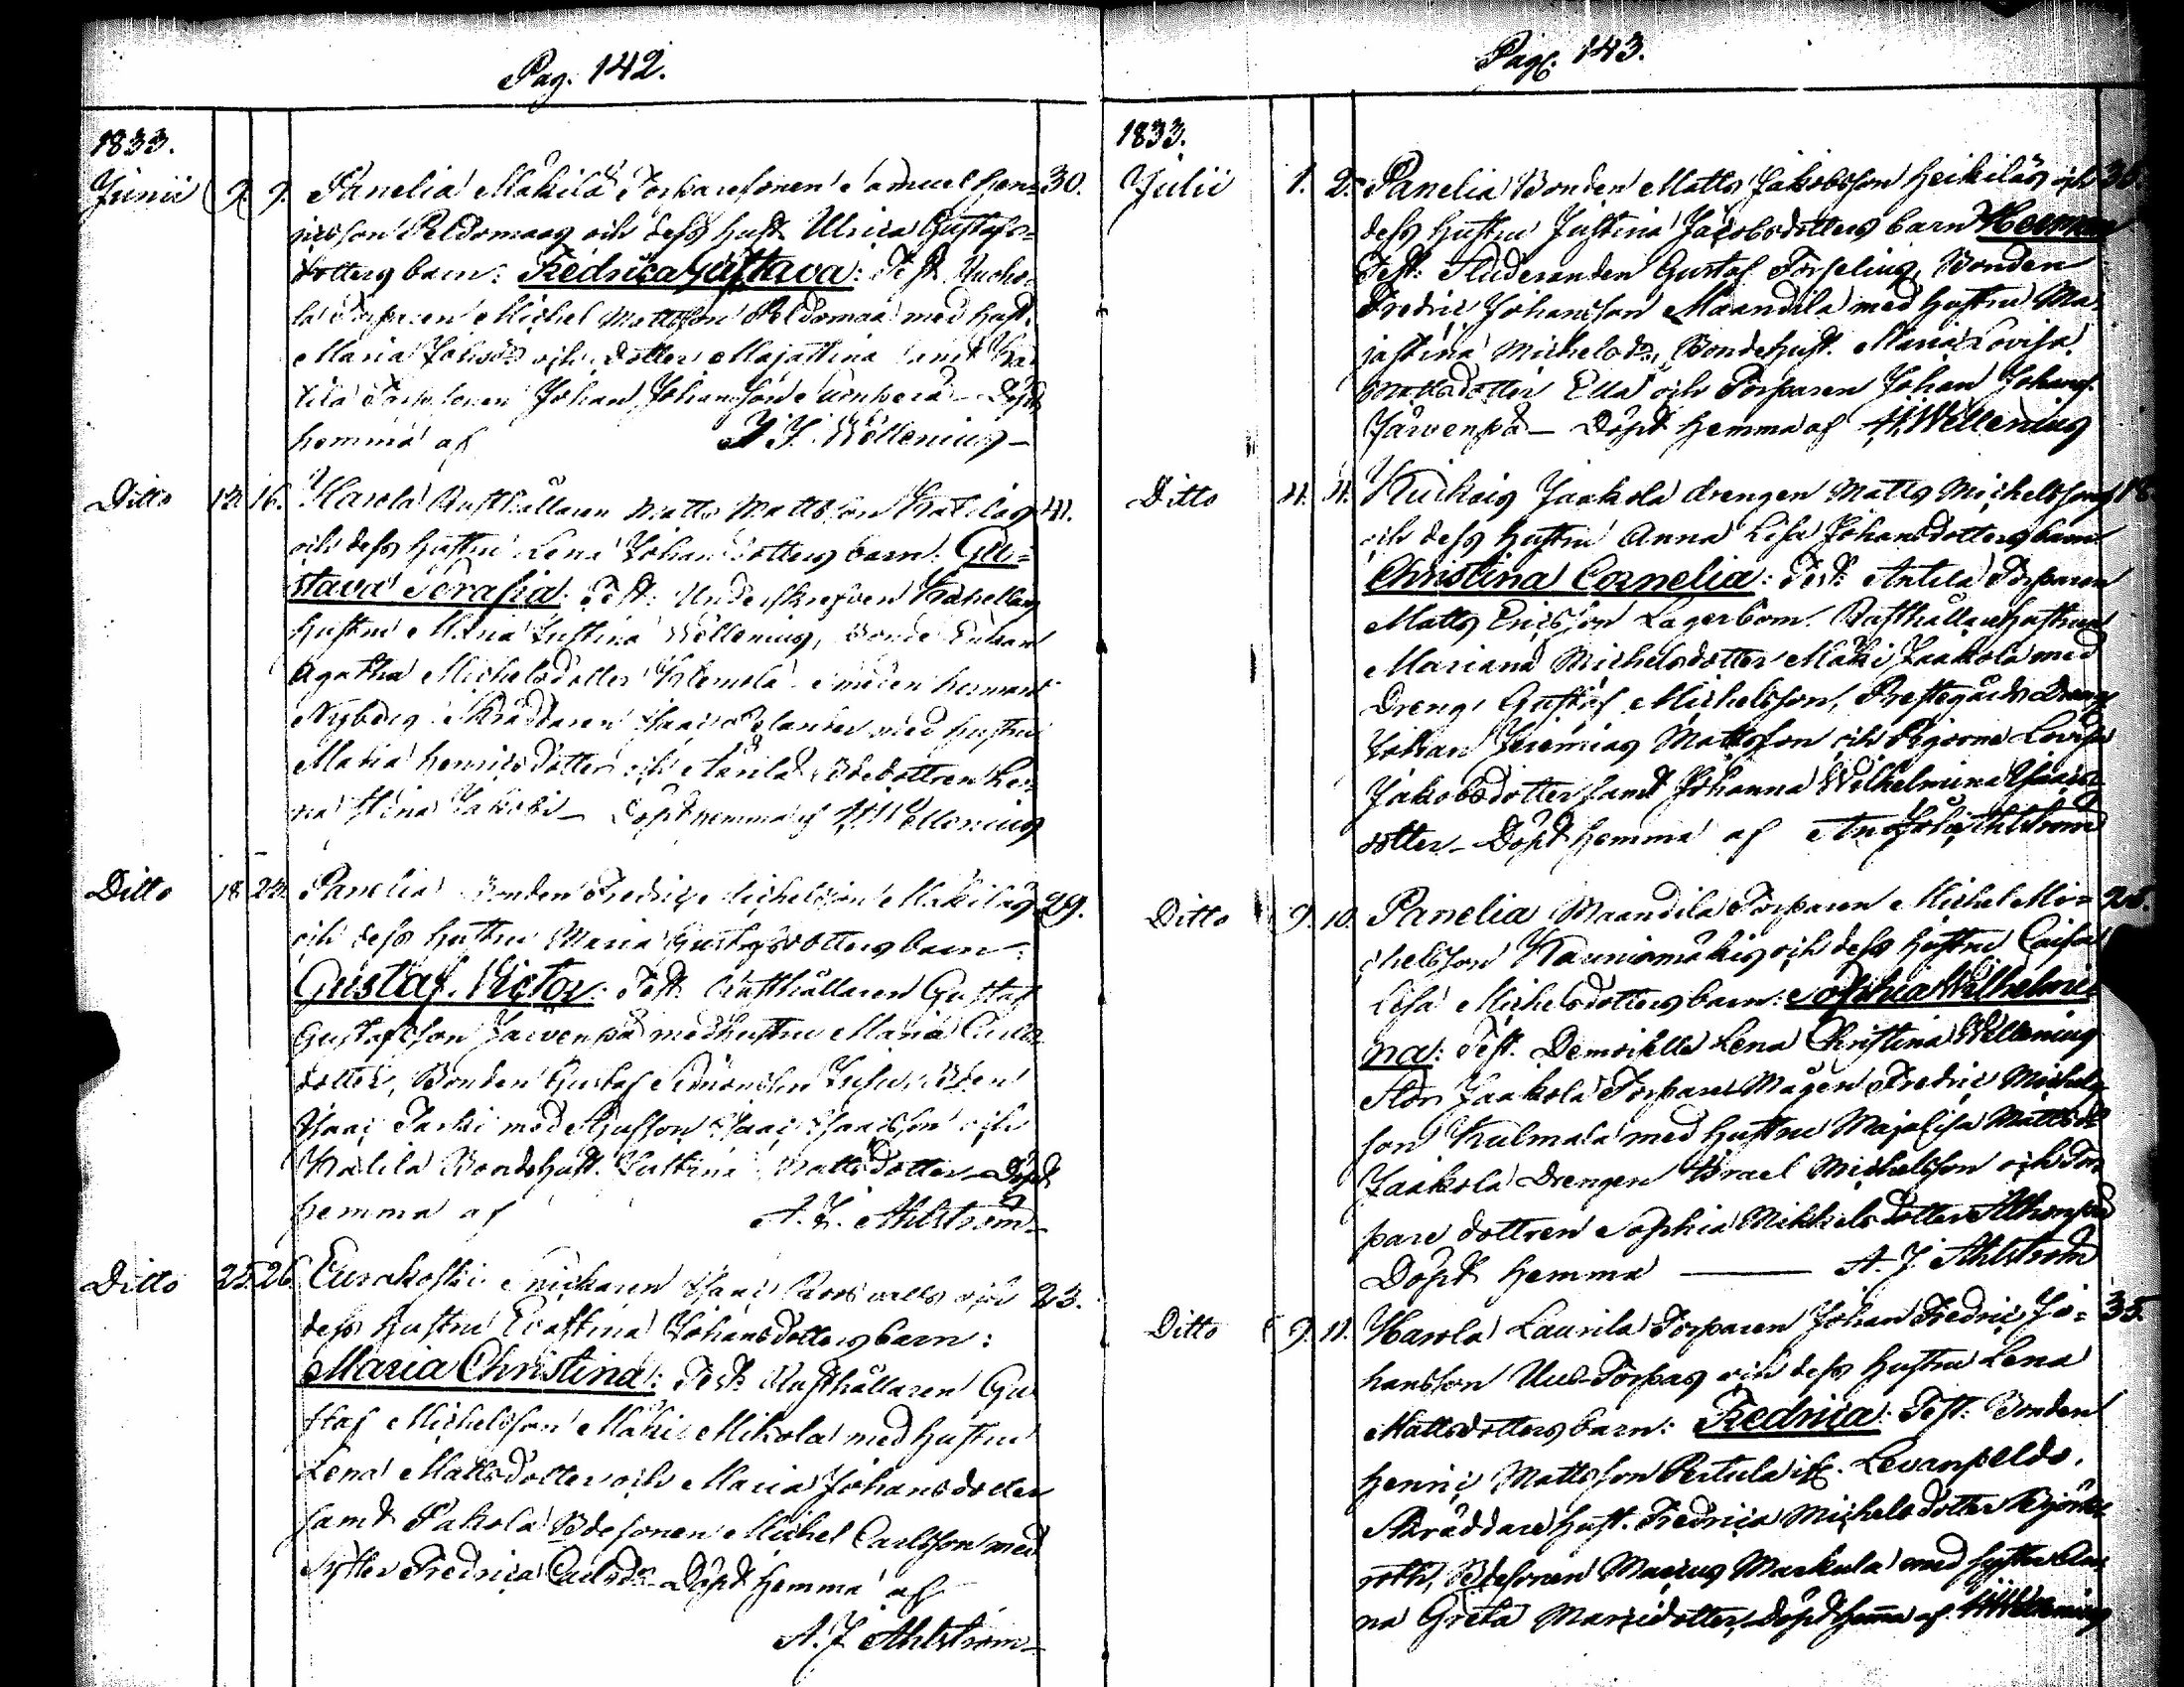 Pag. 142.
1833.
Junii 9. 9. Panelia Mäkilä Torparesonen Samuel Hen- 30.
ricsson Peldomaas och dess Hust. Ulrica Gustafs-
dotters barn: Fredrica Gustava: Test.
Torparen Michel Mattsson Peldomaa med Hust.
Maria och dotter Majastina samt
Johan Johansson Döpt
hemma af Wellenius
Ditto 16. Harola Rusthållaren Matts Mattsson Katilas 41.
och dess Hustru Lena Johansdotters barn: Gu-
stava Serafia: Test: Underskrefven
Hustru Maria Justina Wellenius, Bonde Enkan
Agatha Michelsdotter Smeden Herman
Nyberg Skräddaren Isaac Selander med Hustru
Maria Henricsdotter och Anttila Bdedottren
Stina Döpt hemma af Wellenius
Ditto 18. Panelia Bonden Fredric Michelsson Mäkiläs 29.
och dess Hustru Maria Gustafsdotters barn:
Gustaf Victor: Test. Rusthållaren Gustaf
Gustafsson Järvenpä med Hustru Maria Carls-
dotter, Bonden Gustaf
Isaac med Isaac Isaacsson och
Katila Bondehust. Justina Mattsdotter Döpt
hemma af A. J. Ahlström
Ditto 25. 26. Eurakoski Snickaren Isaac Roosvalls och 23.
dess Hustru Evastina Johansdotters barn:
Maria Christina: Test. Rusthållaren Gu-
staf Michelsson Mäki Mikola med Hustru
Lena Mattsdotter och Maria Johansdotter
samt Pakola Bdesonen Michel Carlsson med
Syster Fredrica Carlsdr. Döpt hemma af
A. J. Ahlström
Pag. 143.
1833.
Julii 1. 2. Panelia Bonden Matts Jakobsson Heikiläs och
dess Hustru Justina Jacobsdotters barn Herman
Test: Studeranden Gustaf Forselius, Bonden
Fredric Johansson Maandila med Hustru Ma-
jastina Michelsdr, Bondehust. Maria Lovisa
Mattsdotter Ella och Torparen Johan Johanss.
Järvenpä Döpt hemma af Wellenius
Ditto Kuckois Jaakola drengen Matts Michelssons 18.
och dess Hustru Anna Lisa Johansdotters barn
Christina Cornelia: Test: Antila Torparen
Matts Ericsson Lagerbom. Rusthållarehustrun
Mariana Michelsdotter Mäki Jaakola med
Dreng Gustaf Michelsson, Prestegårds Dreng
Johan Jeremias Mattsson och Pigorne Lovisa
Jakobsdotter samt Johanna Wilhelmina Isaacs-
dotter Döpt hemma af Ahlström
Ditto 9. 10. Panelia Maandila Torparen Michel Mi- 25.
chelsson Kauniomäkis och dess Hustru Caisa
Lisa Michelsdotters barn: Sophia Wilhelmi-
na: Test. Demoiselle Lena Christina Wellenius
Stor Jaakola Torpare Mågen Fredric Michels-
son Kulmala med Hustru Majalisa Mattsdr
Jaakola Drengen Israel Michelsson och Tor-
pare dottren Sophia Mikkelsdotter
Döpt hemma A. J. Ahlström
Ditto 9. 11. Harola Laurila Torparen Johan Fredric Jo- 35.
hansson Uus-Torpas och dess Hustru Lena
Mattsdotters barn: Fredrica: Test: Bonden
Henric Mattsson Pertula if. Levanpeldo.
Skräddare Hust. Fredrica Michelsdotter Björk-
roth, Bdesonen Marcus Markula med Syster An-
na Greta Marcidotter Döpt hemma af Wellenius